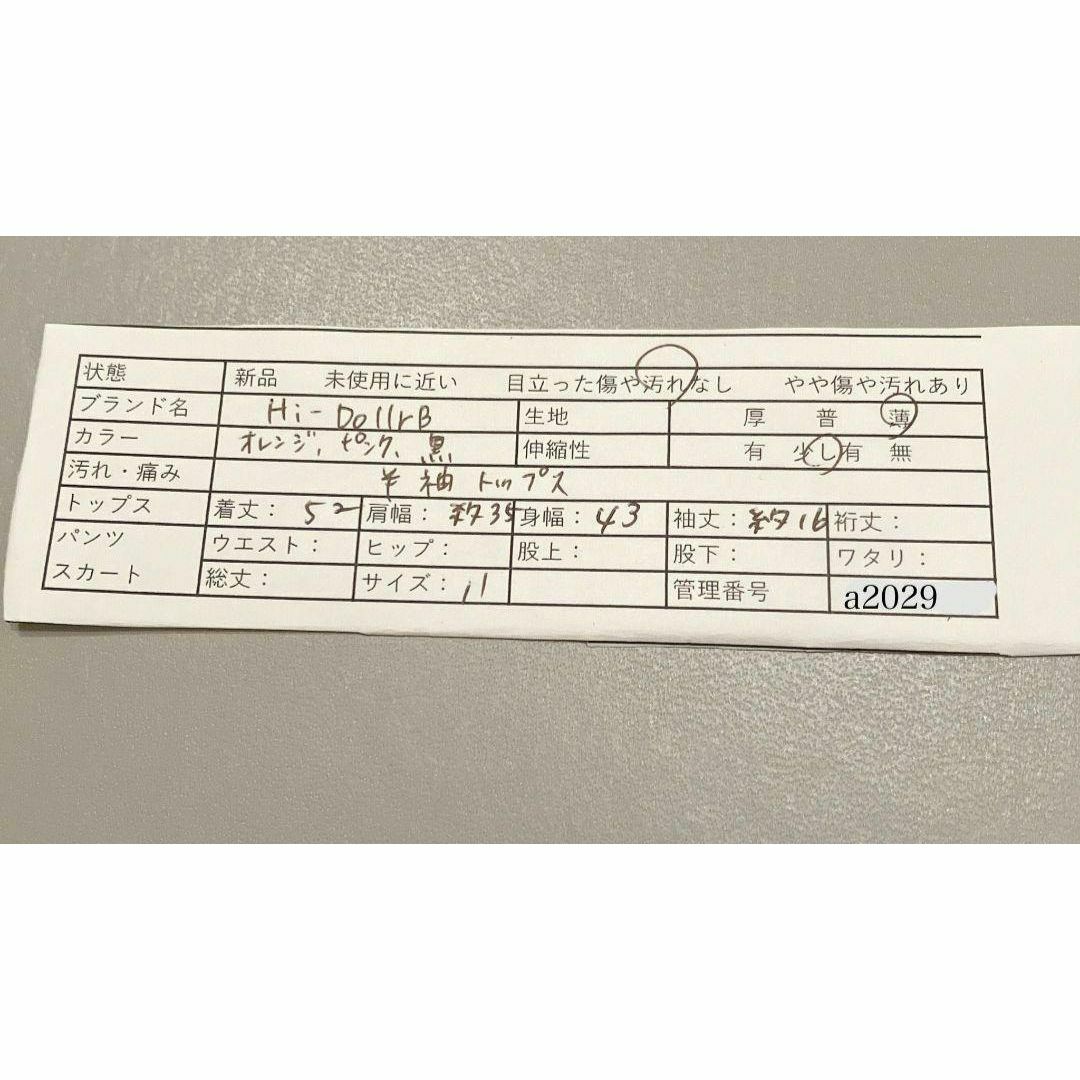 状態 新品 未使用に近い 目立った傷や汚れなし やや傷や汚れあり
ブランド名 Hi-DollrB 生地 厚 普 薄
カラー オレンジ、ピンク、黒 伸縮性 有 少し有 無
汚れ・痛み 半袖トップス
トップス 着丈：52 肩幅：約35 身幅：43 袖丈：約16 裄丈：
パンツ ウエスト： ヒップ： 股上： 股下： ワタリ：
スカート 総丈： サイズ：11 管理番号 a2029